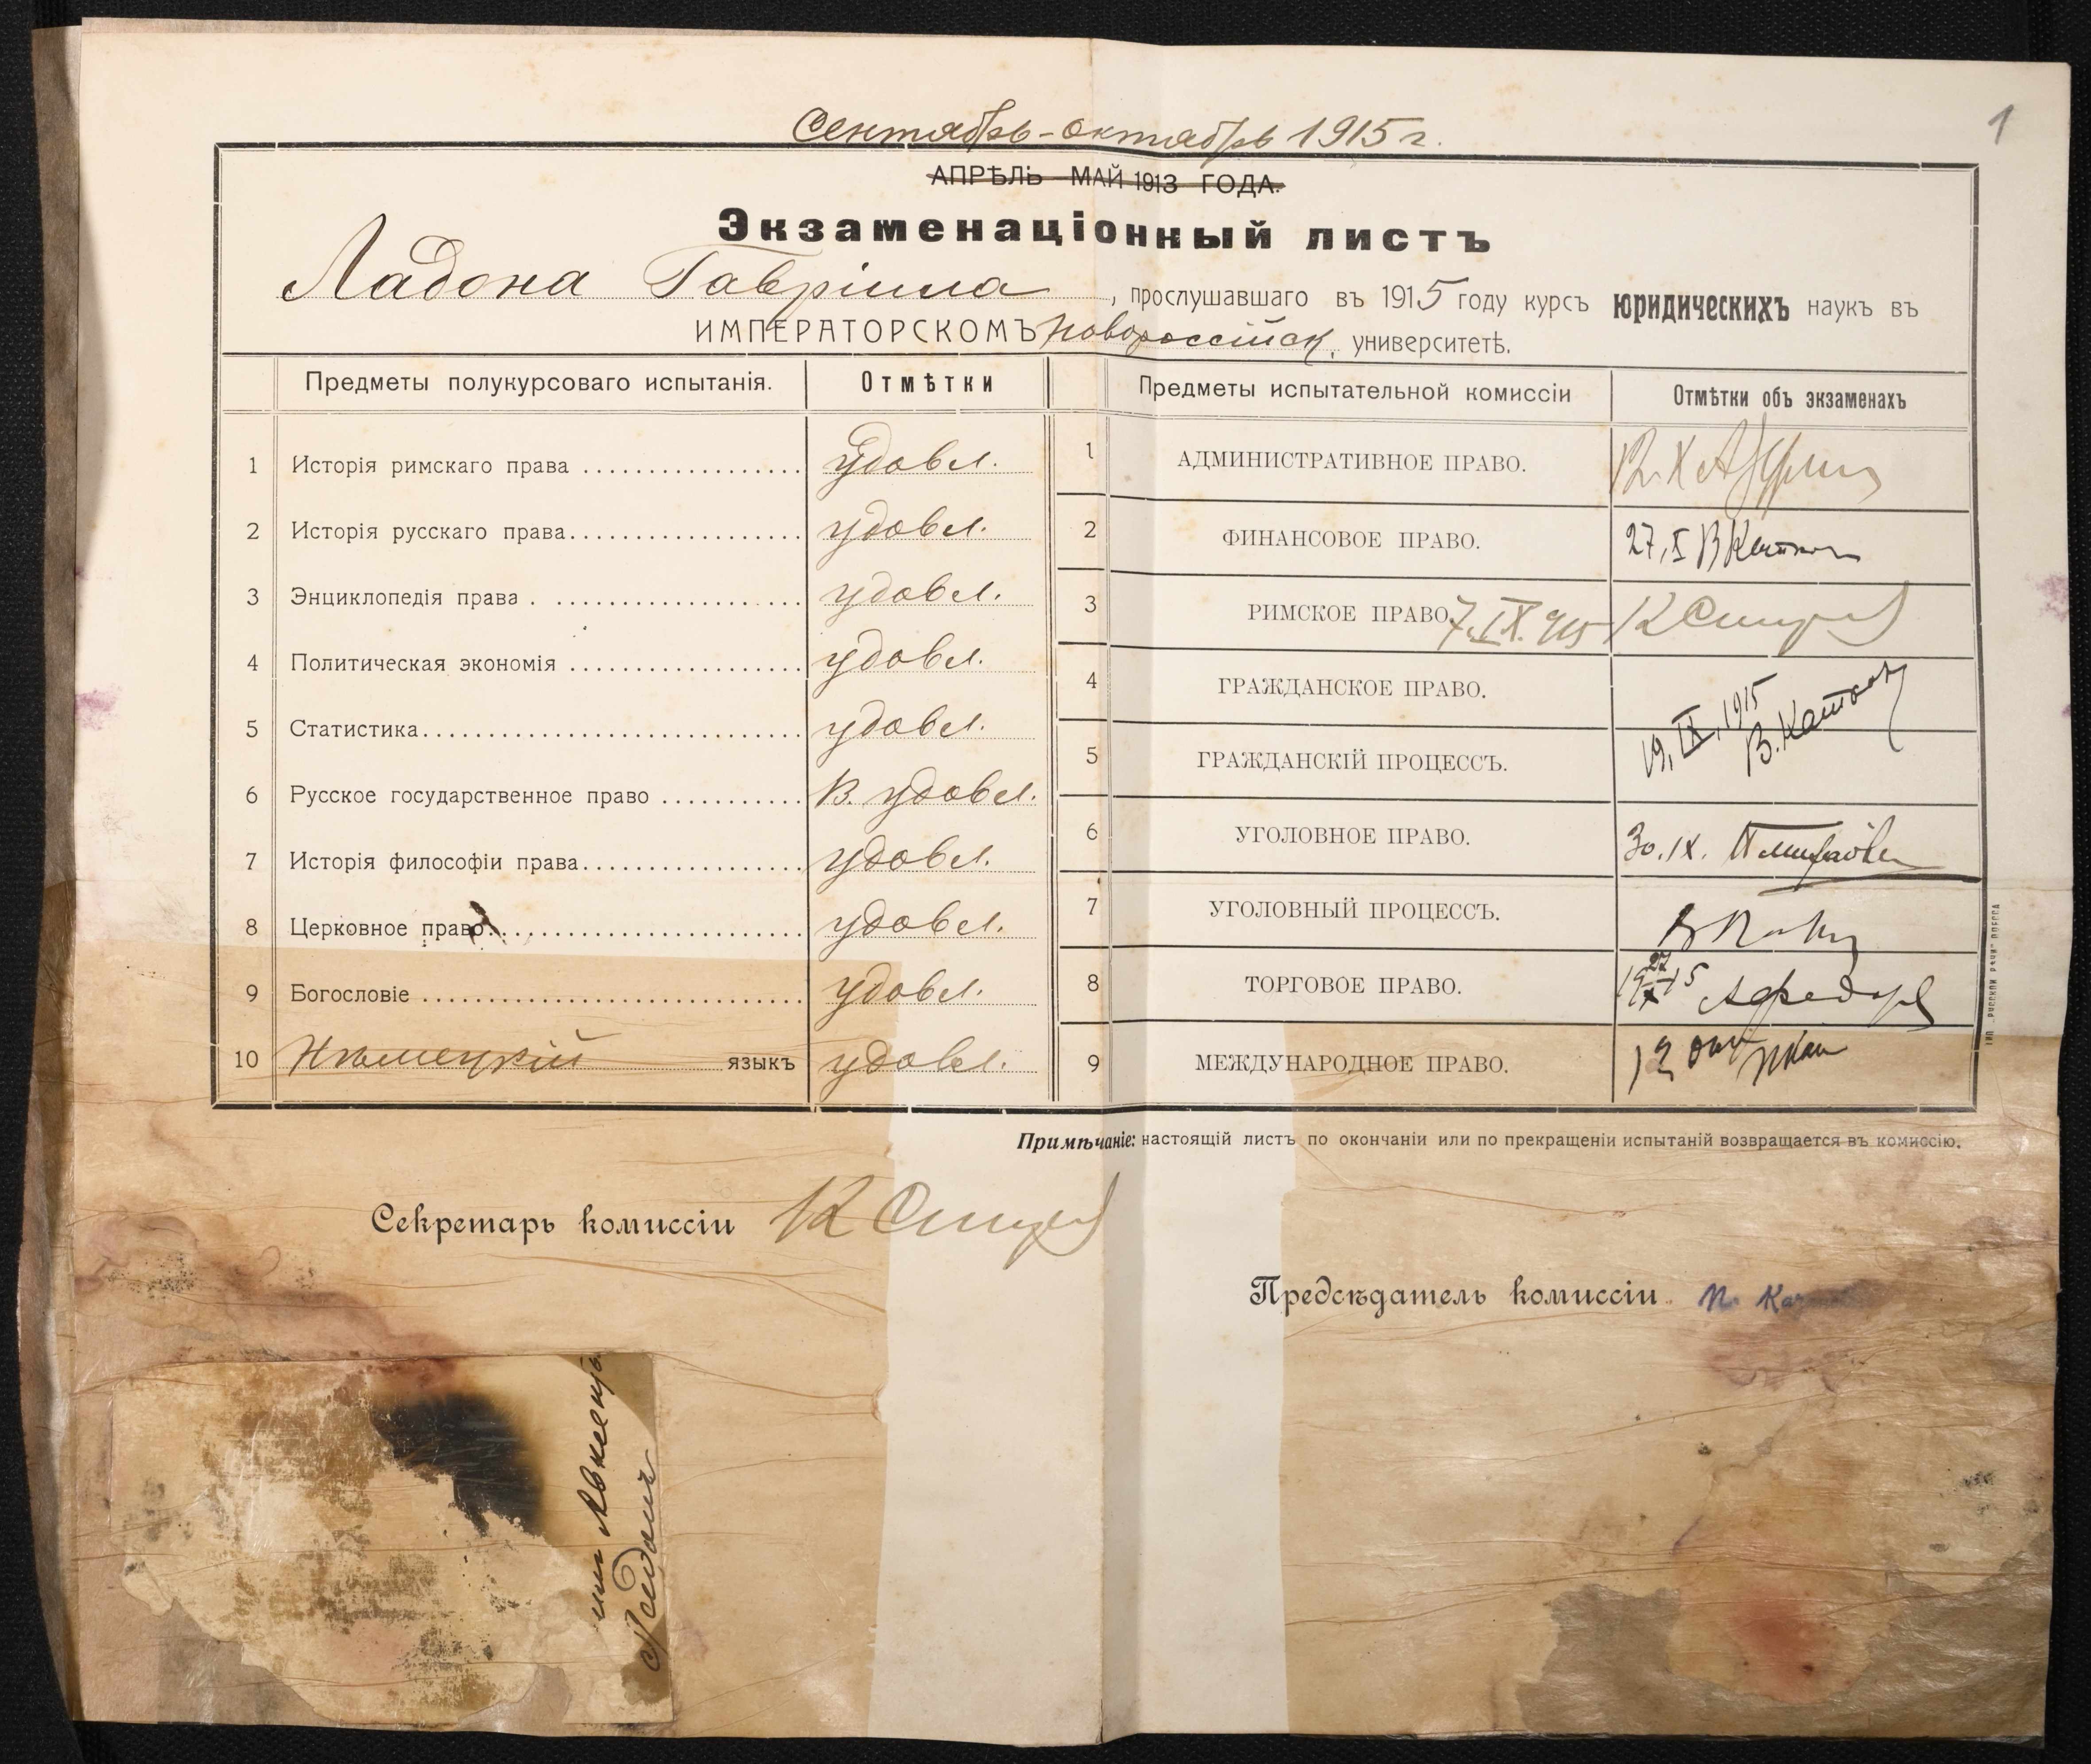 1
Сентябрь-октябрь 1915 г.
АПРѢЛЬ МАЙ 1913 ГОДА.
Экзаменаціонный листъ
Ладона Гавріила, прослушавшаго въ 1915 году курсъ юридическихъ наукъ въ
ИМПЕРАТОРСКОМЪ Новороссійск. университетѣ.
Предметы полукурсоваго испытанія. Отмѣтки Предметы испытательной комиссіи Отмѣтки объ экзаменахъ
1 Исторія римскаго права удовл.
2 Исторія русскаго права удовл.
3 Энциклопедія права удовл.
4 Политическая экономія удовл.
5 Статистика удовл.
6 Русское государственное право В. удовл.
7 Исторія философіи права удовл.
8 Церковное право удовл.
9 Богословіе удовл.
10 Нѣмецкій языкъ удовл.
1 АДМИНИСТРАТИВНОЕ ПРАВО. 12.X
2 ФИНАНСОВОЕ ПРАВО. 27,X
3 РИМСКОЕ ПРАВО. 7.IX.915
4 ГРАЖДАНСКОЕ ПРАВО. 19.IX.1915
5 ГРАЖДАНСКІЙ ПРОЦЕССЪ. В.
6 УГОЛОВНОЕ ПРАВО. 30.IX.
7 УГОЛОВНЫЙ ПРОЦЕССЪ.
8 ТОРГОВОЕ ПРАВО.
9 МЕЖДУНАРОДНОЕ ПРАВО. 12 окт
Примѣчаніе: настоящій листъ по окончаніи или по прекращеніи испытаній возвращается въ комиссію.
Секретарь комиссіи К
Предсѣдатель комиссіи П.
Ладонъ